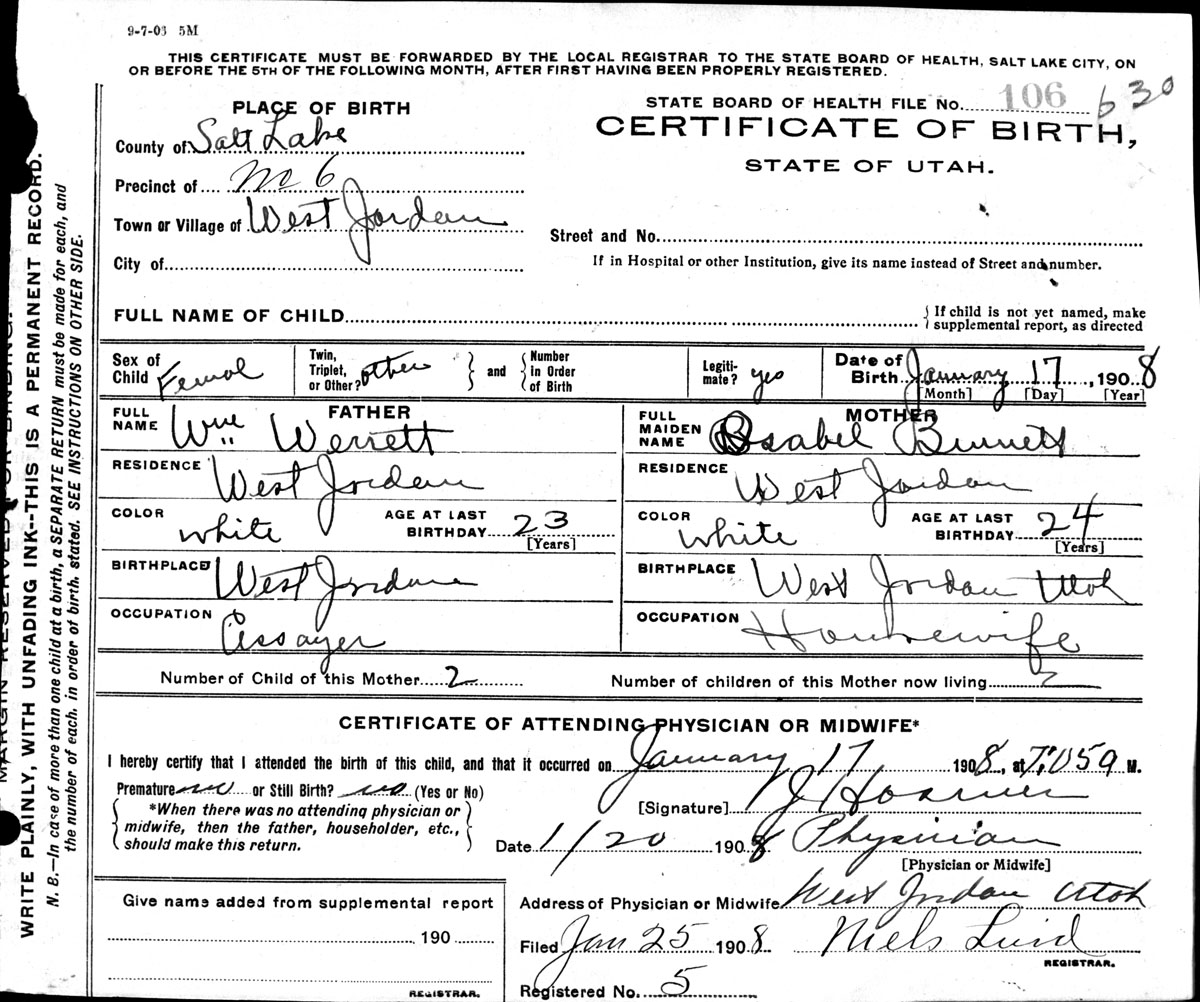 9-7-03 5M
THIS CERTIFICATE MUST BE FORWARDED BY THE LOCAL REGISTRAR TO THE STATE BOARD OF HEALTH, SALT LAKE CITY, ON
OR BEFORE THE 5TH OF THE FOLLOWING MONTH, AFTER FIRST HAVING BEEN PROPERLY REGISTERED.
PLACE OF BIRTH
County of Salt Lake
Precinct of No 6
Town or Village of West Jordan
City of
STATE BOARD OF HEALTH FILE No. 106 630
CERTIFICATE OF BIRTH,
STATE OF UTAH.
Street and No.
If in Hospital or other Institution, give its name instead of Street and number.
FULL NAME OF CHILD
{If child is not yet named, make
supplemental report, as directed
Sex of Child Femal
Twin, Triplet, or Other? other
and
Number in Order of Birth
Legiti-mate? yes
Date of Birth January 17, 1908
[Month] [Day] [Year]
FATHER
FULL NAME Wm Werrett
RESIDENCE West Jordan
COLOR white
AGE AT LAST BIRTHDAY 23
[Years]
BIRTHPLACE West Jordan
OCCUPATION Assayer
MOTHER
FULL MAIDEN NAME Isabel
RESIDENCE West Jordan
COLOR white
AGE AT LAST BIRTHDAY 24
[Years]
BIRTHPLACE West Jordan Utah
OCCUPATION Housewife
Number of Child of this Mother 2
Number of children of this Mother now living 2
CERTIFICATE OF ATTENDING PHYSICIAN OR MIDWIFE*
I hereby certify that I attended the birth of this child, and that it occurred on January 17 1908, at M.
Premature no or Still Birth? no (Yes or No)
*When there was no attending physician or
midwife, then the father, householder, etc.,
should make this return.
[Signature] J
Date 1/20 1908 Physician
[Physician or Midwife]
Address of Physician or Midwife West Jordan Utah
Filed Jan 25 1908 Niels Lind
REGISTRAR.
Registered No. 5
Give name added from supplemental report
190
REGISTRAR.
MARGIN RESERVED FOR BINDING.
WRITE PLAINLY, WITH UNFADING INK--THIS IS A PERMANENT RECORD.
N. B.—In case of more than one child at a birth, a SEPARATE RETURN must be made for each, and
the number of each, in order of birth, stated. SEE INSTRUCTIONS ON OTHER SIDE.